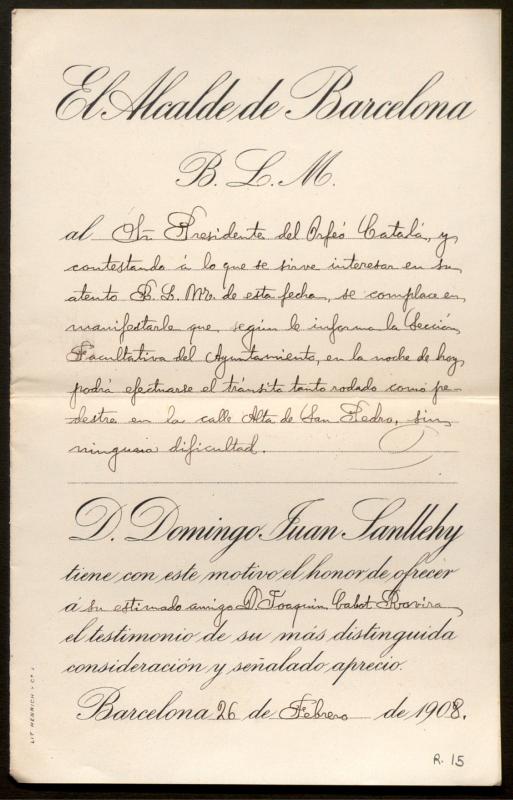 El Alcalde de Barcelona
B. L. M.
al Sr. Presidente del Orfeó Catalá, y
contestando á lo que se sirve interesar en su
atento B. L. M. de esta fecha, se complace en
manifestarle que, según le informa la Sección
Facultativa del Ayuntamiento, en la noche de hoy
podrá efectuarse el tránsito tanto rodado como pe-
destre en la calle Alta de San Pedro, sin
ninguna dificultad.
D. Domingo Juan Sanllehy
tiene con este motivo el honor de ofrecer
á su estimado amigo D. Joaquin Cabot Rovira
el testimonio de su más distinguida
consideración y señalado aprecio.
Barcelona 26 de Febrero de 1908.
LIT. HENRICH Y Cª
R. 15